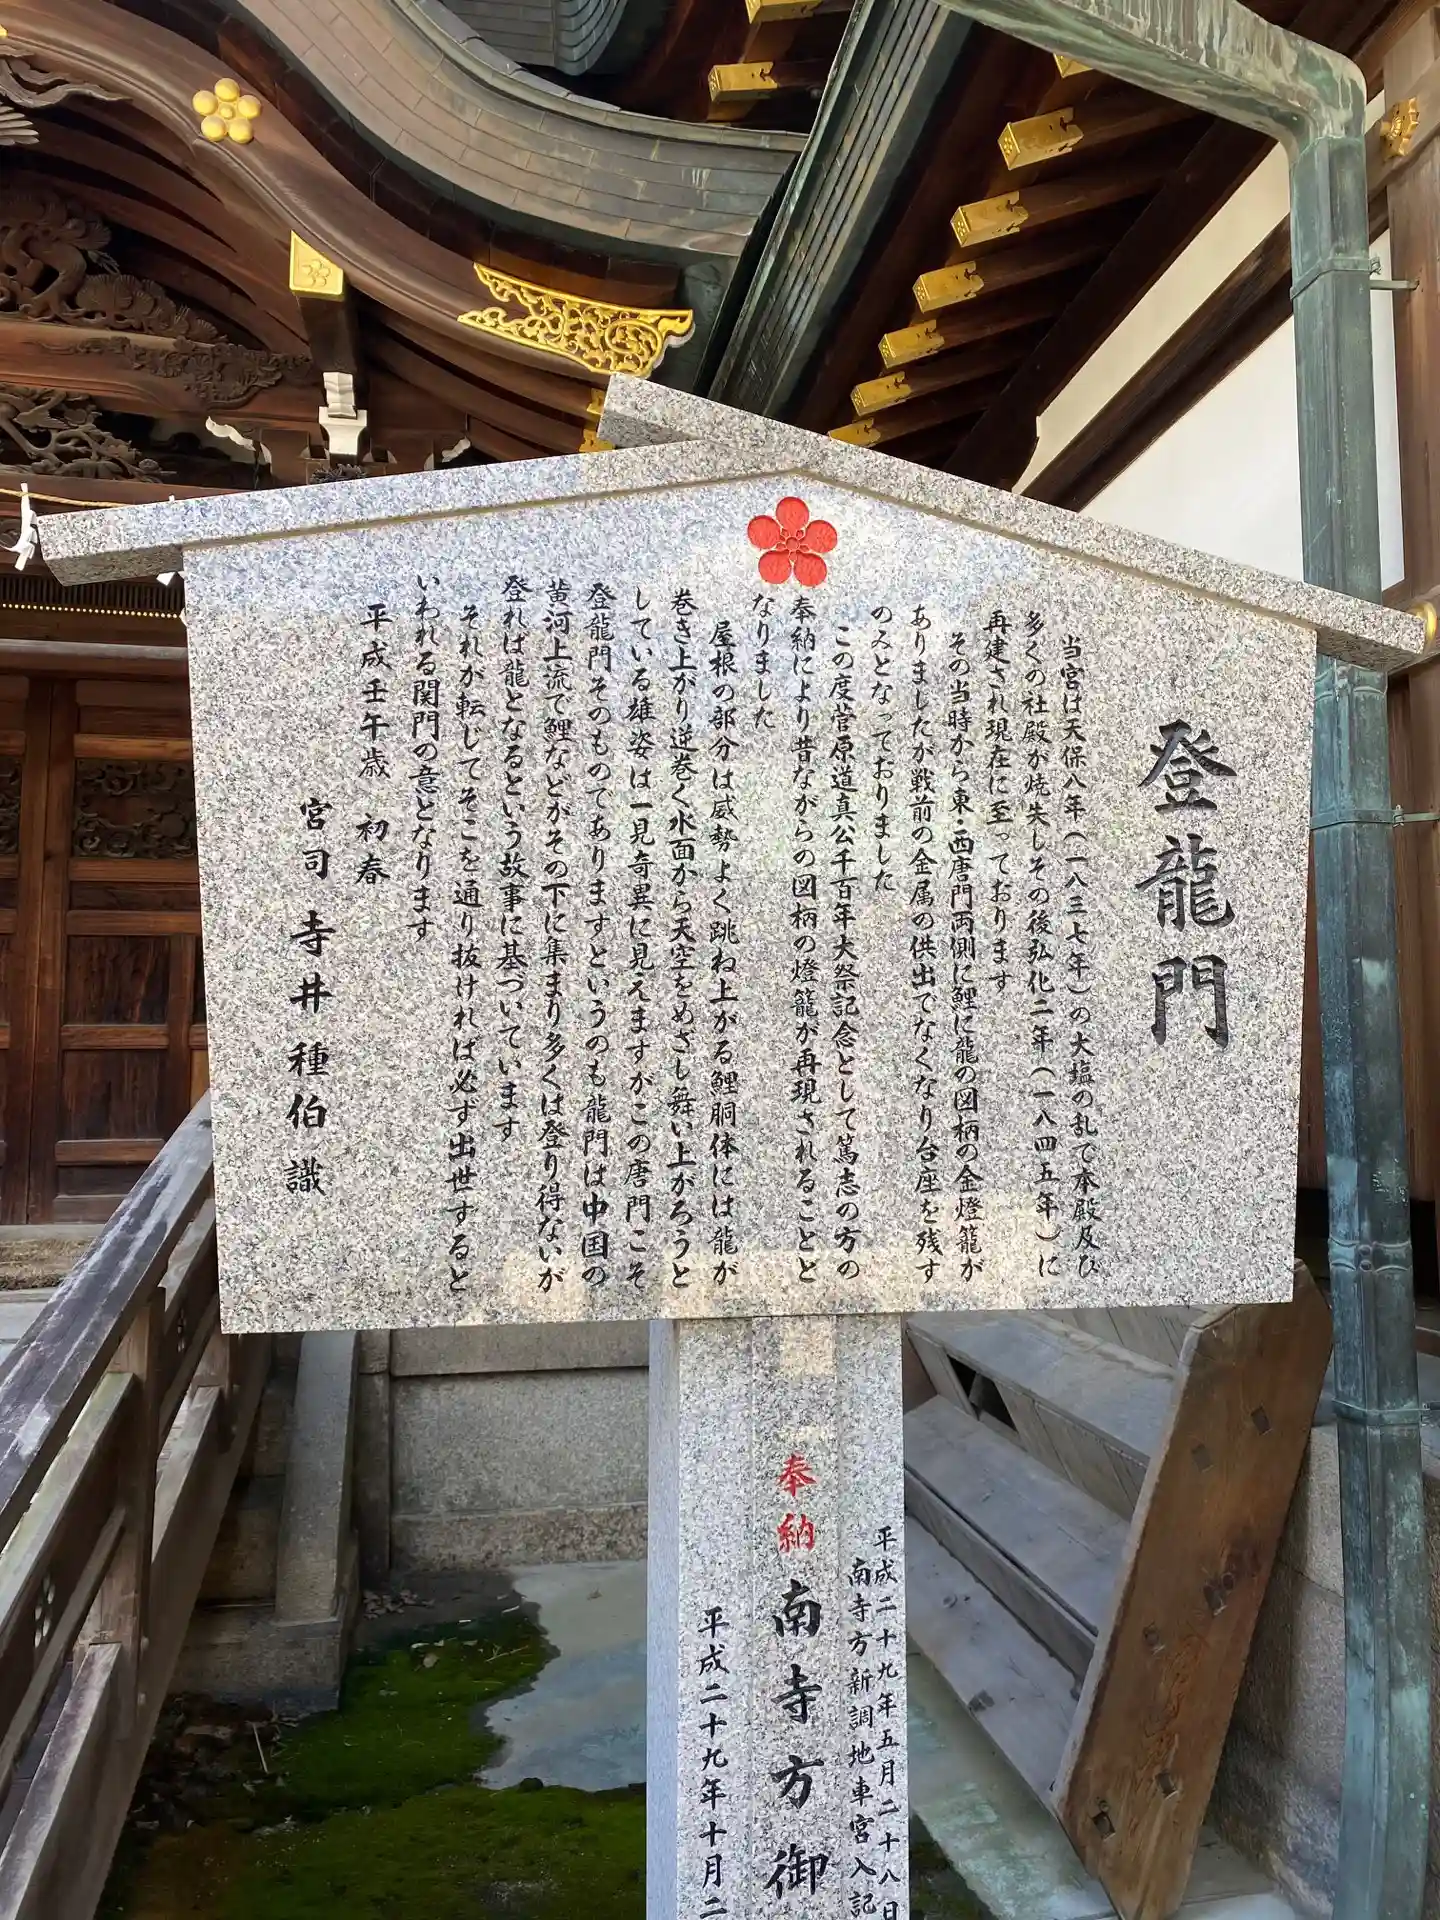 登龍門
当宮は天保八年(一八三七年)の大塩の乱で本殿及び
多くの社殿が焼失しその後弘化二年(一八四五年)に
再建され現在に至っております
その当時から東・西唐門両側に鯉に龍の図柄の金燈籠が
ありましたが戦前の金属の供出でなくなり台座を残す
のみとなっておりました
この度菅原道真公千百年大祭記念として篤志の方の
奉納により昔ながらの図柄の燈籠が再現されることと
なりました
屋根の部分は威勢よく跳ね上がる鯉胴体には龍が
巻き上がり逆巻く水面から天空をめざし舞い上がろうと
している雄姿は一見奇異に見えますがこの唐門こそ
登龍門そのものでありますというのも龍門は中国の
黄河上流で鯉などがその下に集まり多くは登り得ないが
登れば龍となるという故事に基づいています
それが転じてそこを通り抜ければ必ず出世すると
いわれる関門の意となります
平成壬午歳 初春
宮司 寺井種伯 識
平成二十九年五月二十八日
南寺方新調地車宮入記
奉納 南寺方御
平成二十九年十月二